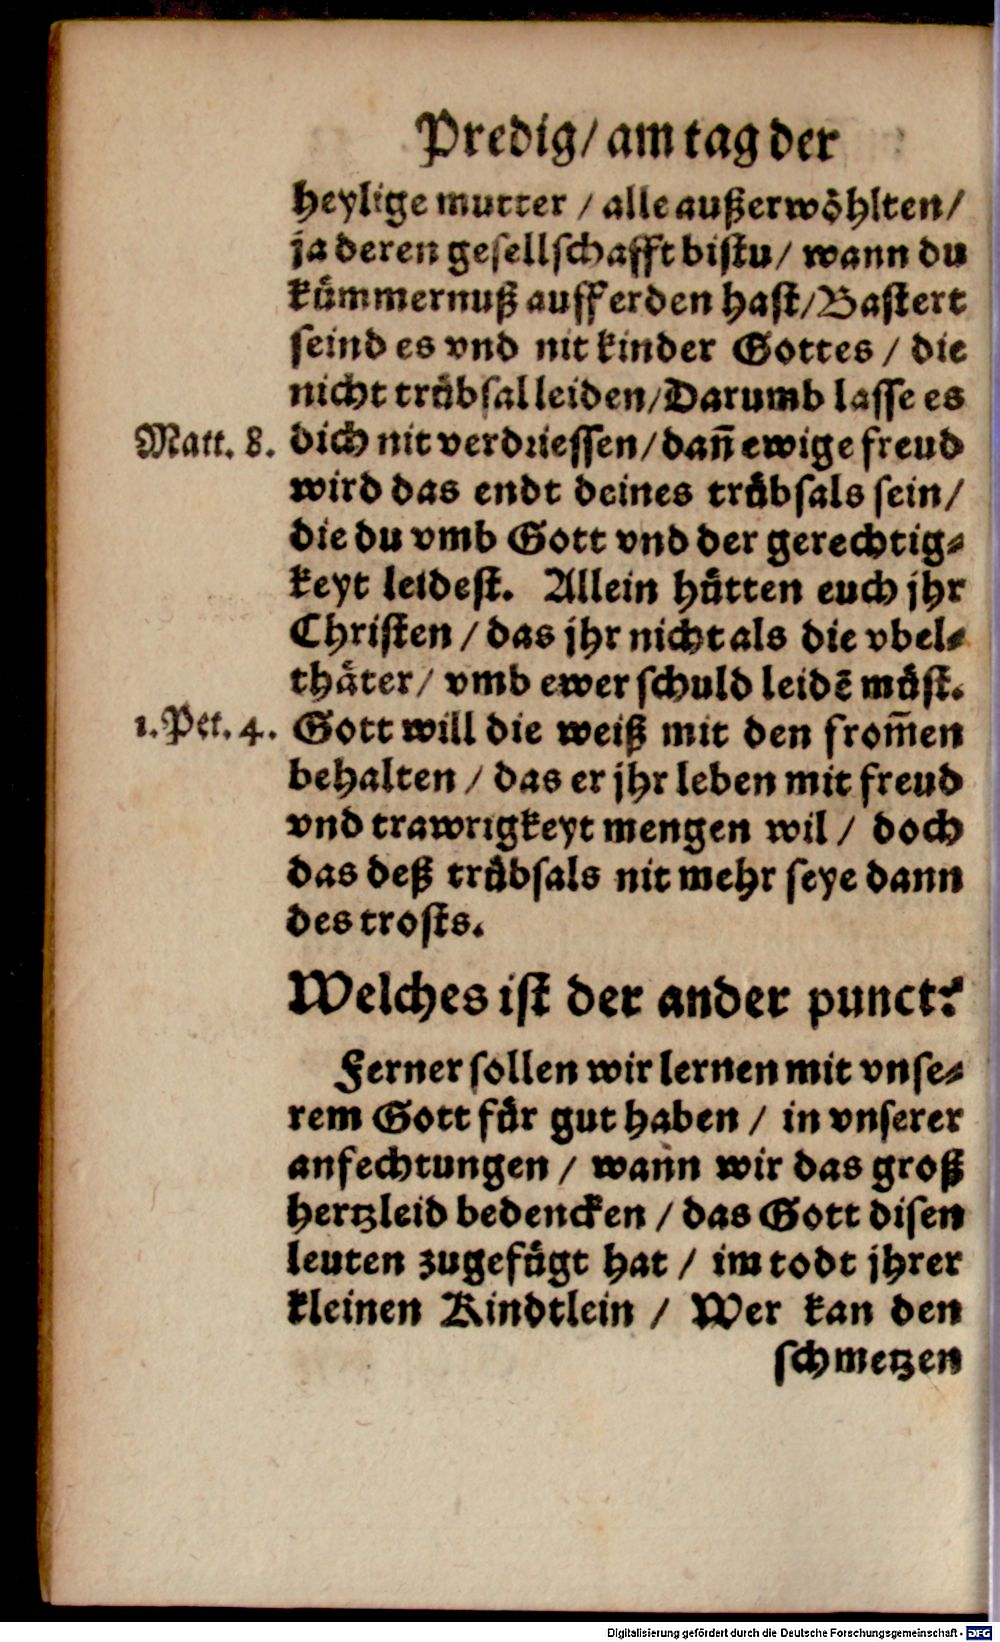 Predig/ am tag der
heylige mutter / alle außerwöhlten/
ja deren gesellschafft bistu/ wann du
kümmernuß auff erden hast/Bastert
seind es vnd nit kinder Gottes / die
nicht trübsal leiden/Darumb lasse es
Matt. 8. dich nit verdriessen/dañ ewige freud
wird das endt deines trübsals sein/
die du vmb Gott vnd der gerechtig⸗
keyt leidest. Allein hütten euch jhr
Christen / das jhr nicht als die vbel⸗
thäter/ vmb ewer schuld leidẽ müst.
1. Pet. 4. Gott will die weiß mit den from̃en
behalten / das er jhr leben mit freud
vnd trawrigkeyt mengen wil / doch
das deß trübsals nit mehr seye dann
des trosts.
Welches ist der ander punct?
Ferner sollen wir lernen mit vnse⸗
rem Gott für gut haben / in vnserer
anfechtungen / wann wir das groß
hertzleid bedencken / das Gott disen
leuten zugefügt hat / im todt jhrer
kleinen Kindtlein / Wer kan den
schmetzen
Digitalisierung gefördert durch die Deutsche Forschungsgemeinschaft - DFG